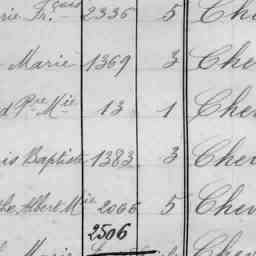 rie Fr.çois 2336 5 Che
Marie 1369 3 Chev
d Pre Mie 13 1 Cher
is Baptiste 1383 3 Chev
the Albert Mie 2066 5 Chev
2506
Marie